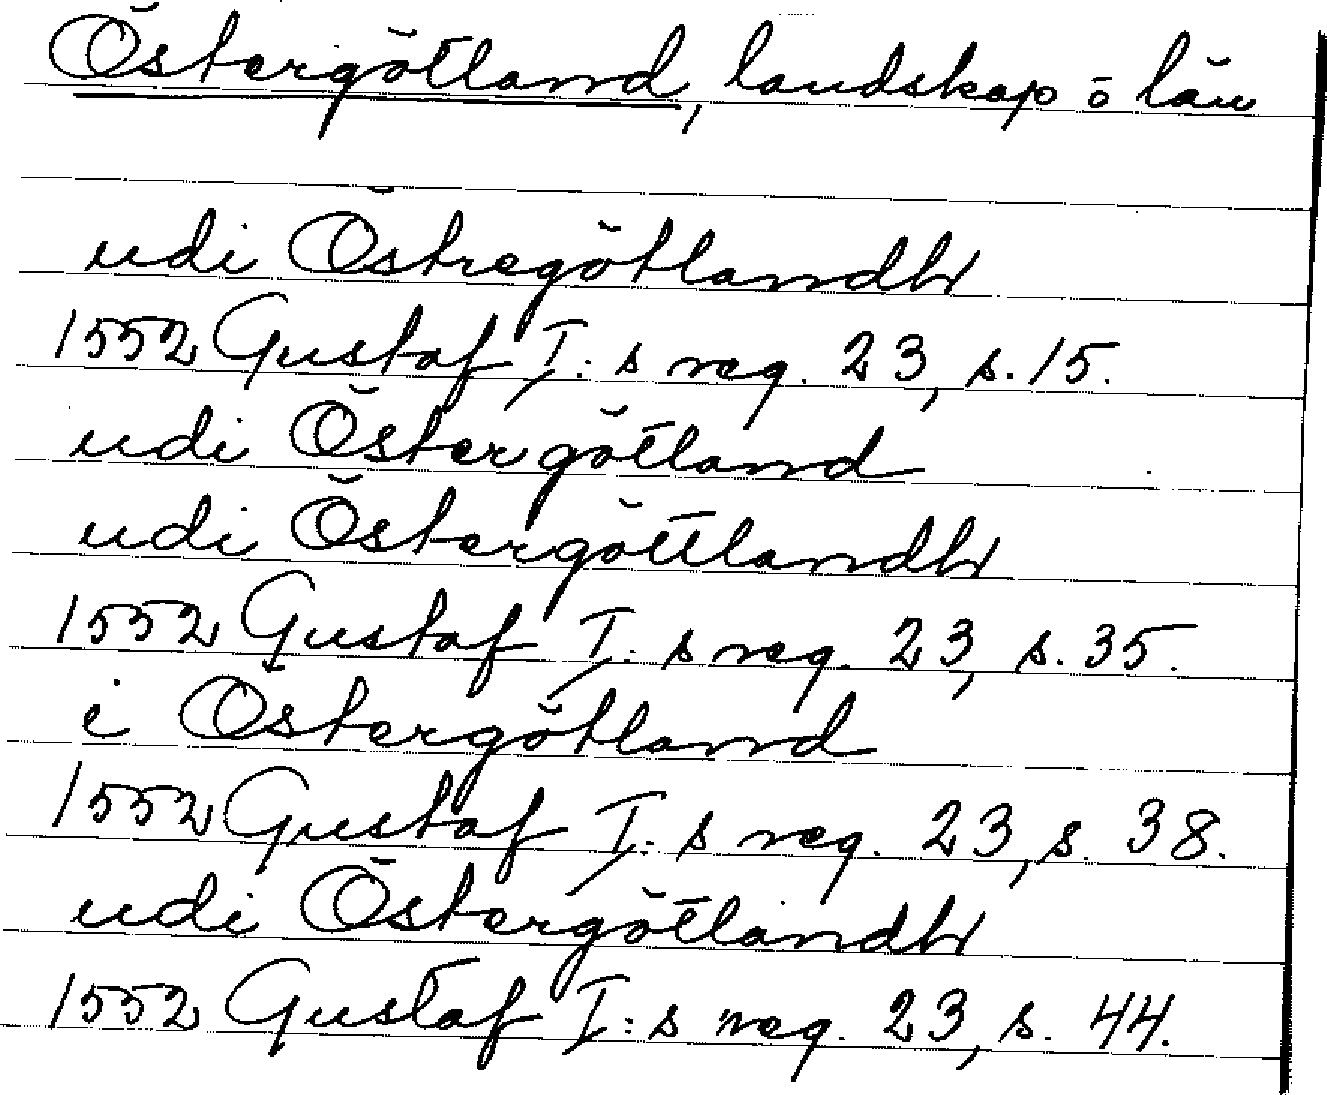 Östergötland, landskap o län
udi Östregötlandh
1552 Gustaf I:s reg. 23, s. 15.
udi Östergötland
udi Östergöttlandh
1552 Gustaf I:s reg. 23, s. 35.
i Östergötland
1552 Gustaf I:s reg. 23, s. 38.
udi Östergötlandh
1552 Gustaf I:s reg. 23, s. 44.